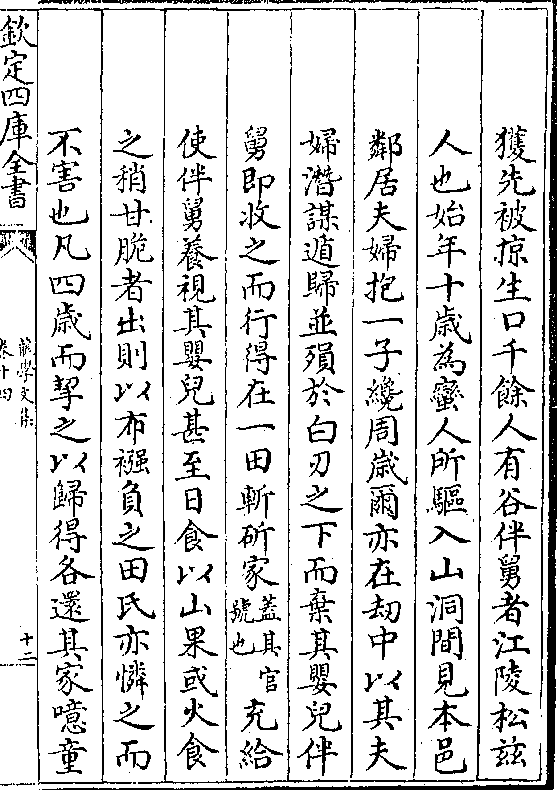 獲先被掠生口千餘人有谷伴舅者江陵松兹
人也始年十歳為蠻人所驅入山洞間見本邑
鄰居夫婦抱一子纔周歳爾亦在刼中以其夫
婦潛謀遁歸並殞於白刃之下而棄其嬰兒伴
舅即收之而行得在一田斬斫家蓋其官號也充給
使伴舅養視其嬰兒甚至日食以山果或火食
之稍甘脆者出則以布襁負之田氏亦憐之而
不害也凡四歳而挈之以歸得各還其家噫童
欽定四庫全書
卷十四
十二